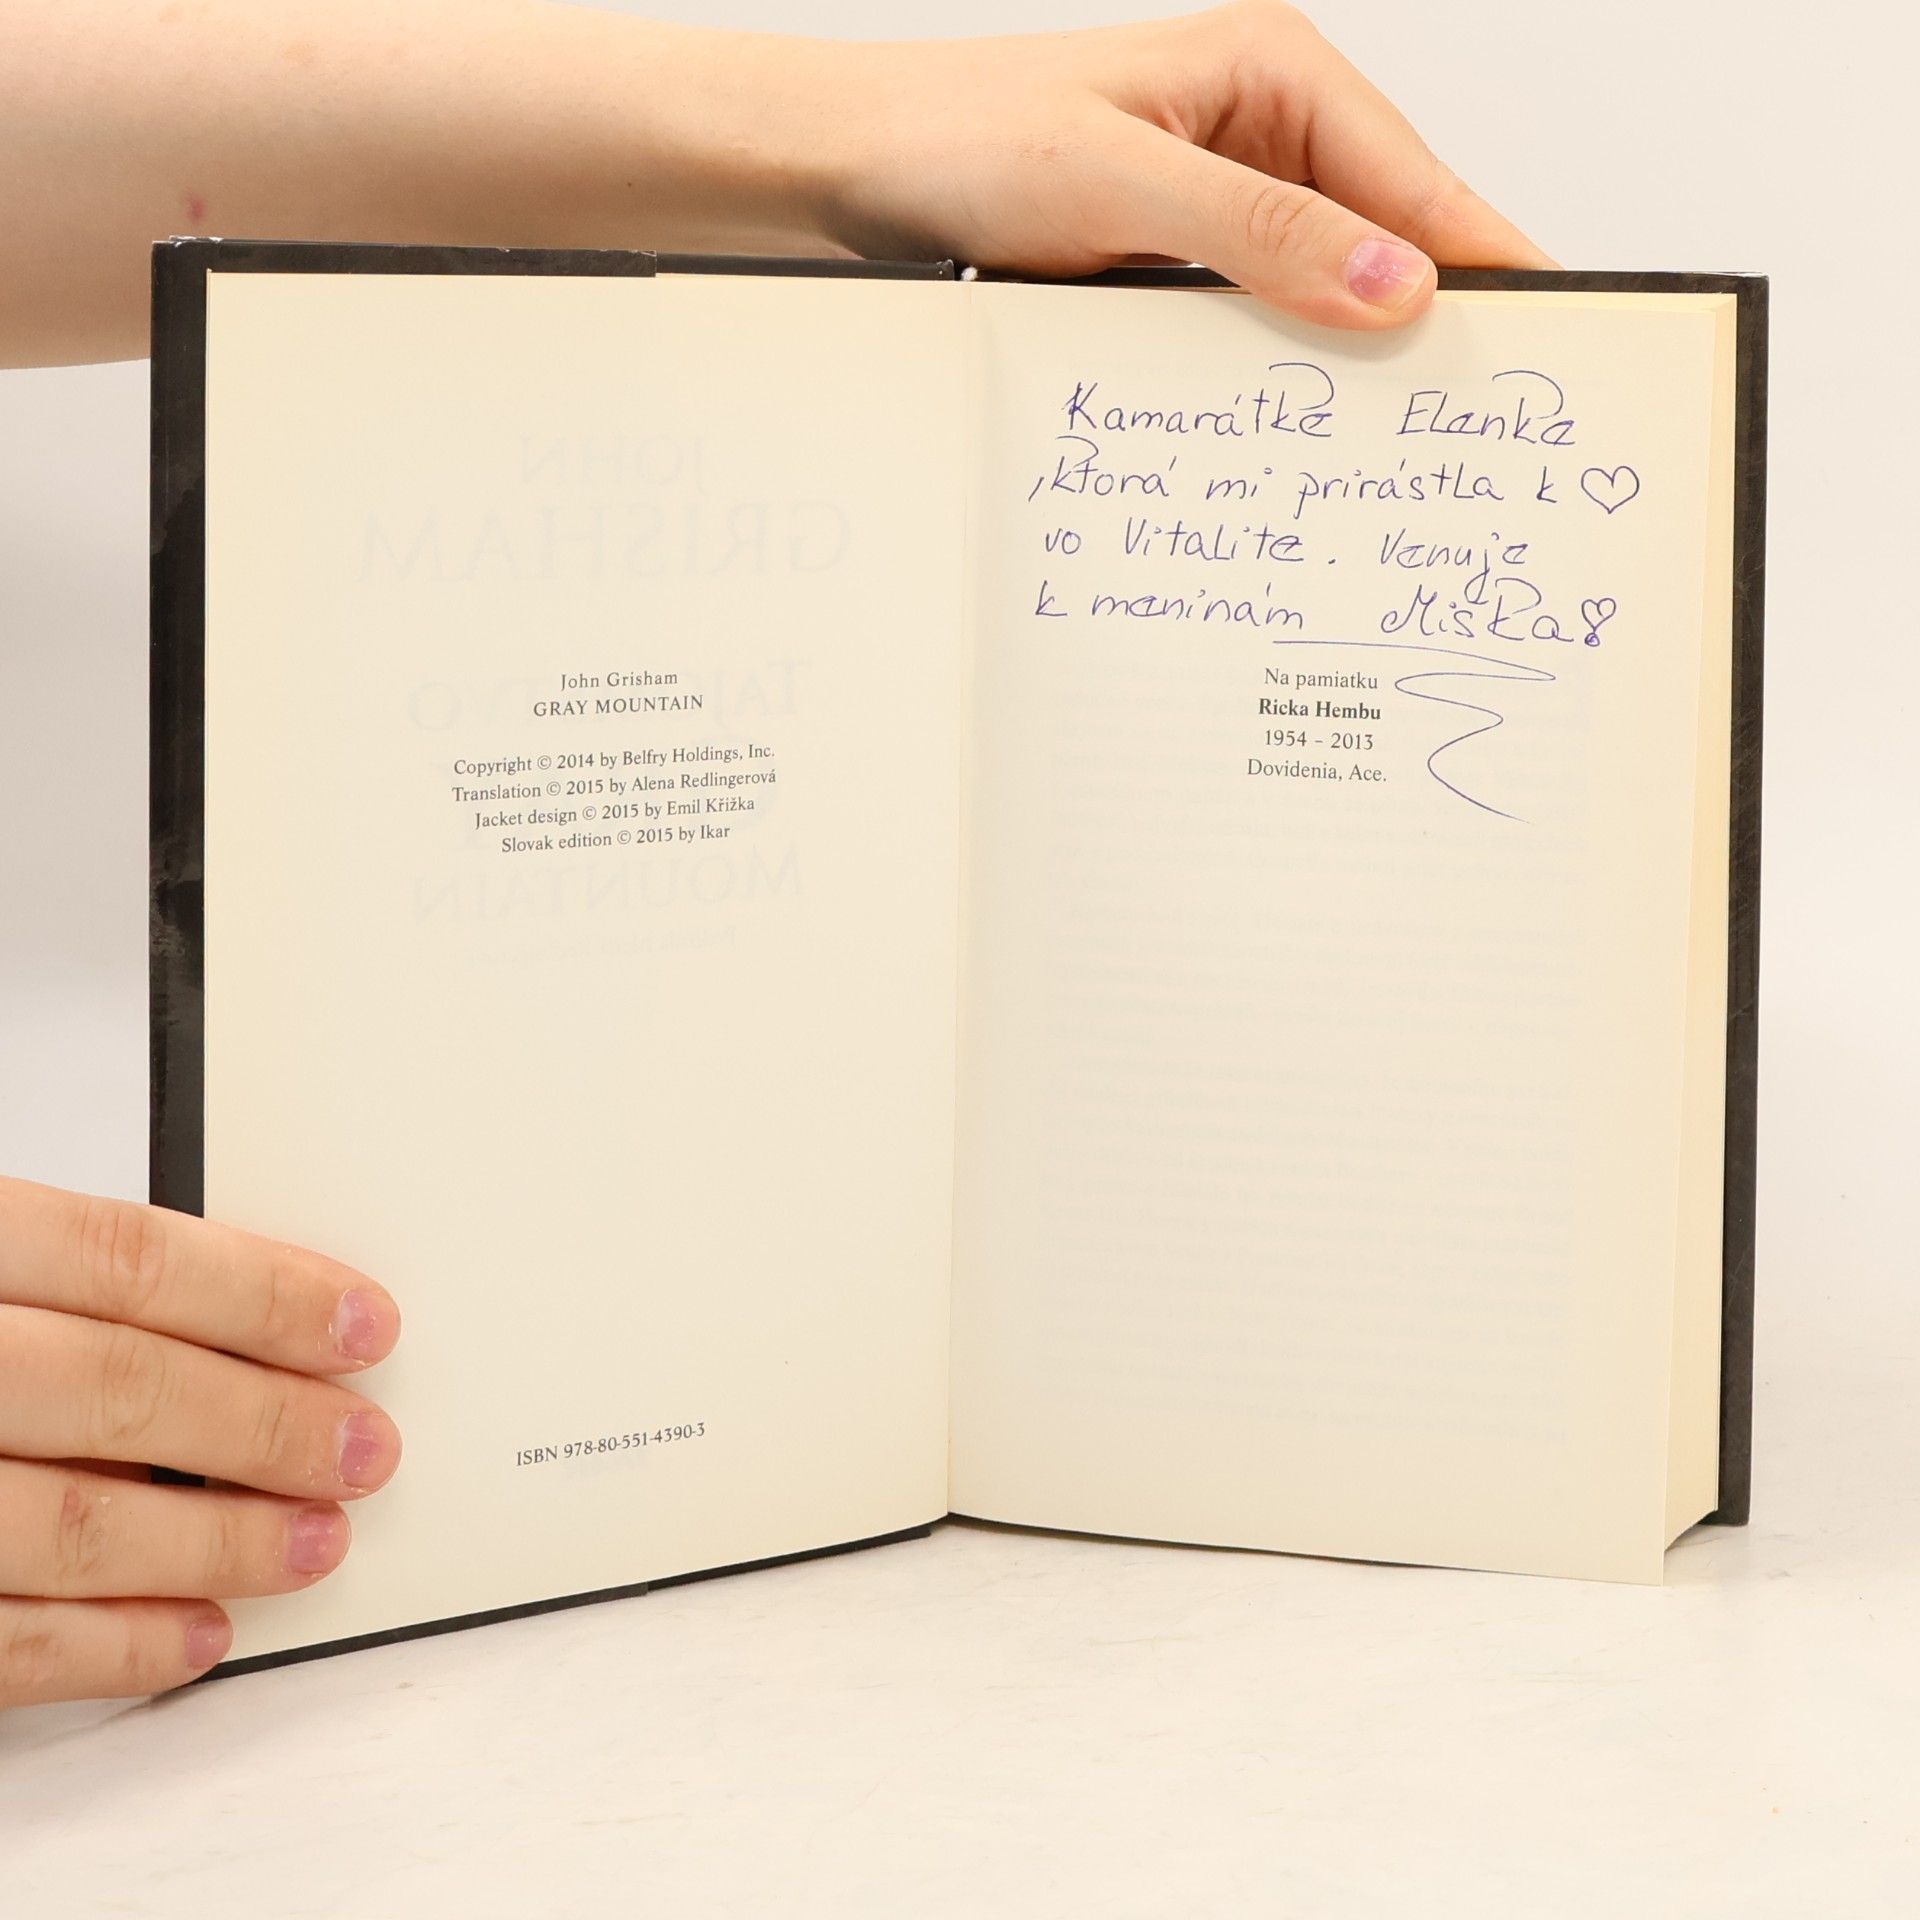 John Grisham
GRAY MOUNTAIN
Copyright © 2014 by Belfry Holdings, Inc.
Translation © 2015 by Alena Redlingerová
Jacket design © 2015 by Emil Křižka
Slovak edition © 2015 by Ikar
ISBN 978-80-551-4390-3
Kamarátke Elenke
,ktorá mi prirástla k ♡
vo Vitalite. Venuje
k meninám Miška
Na pamiatku
Ricka Hembu
1954 – 2013
Dovidenia, Ace.
JOHN
GRISHAM
TAJOMSTVO
MOUNTAIN